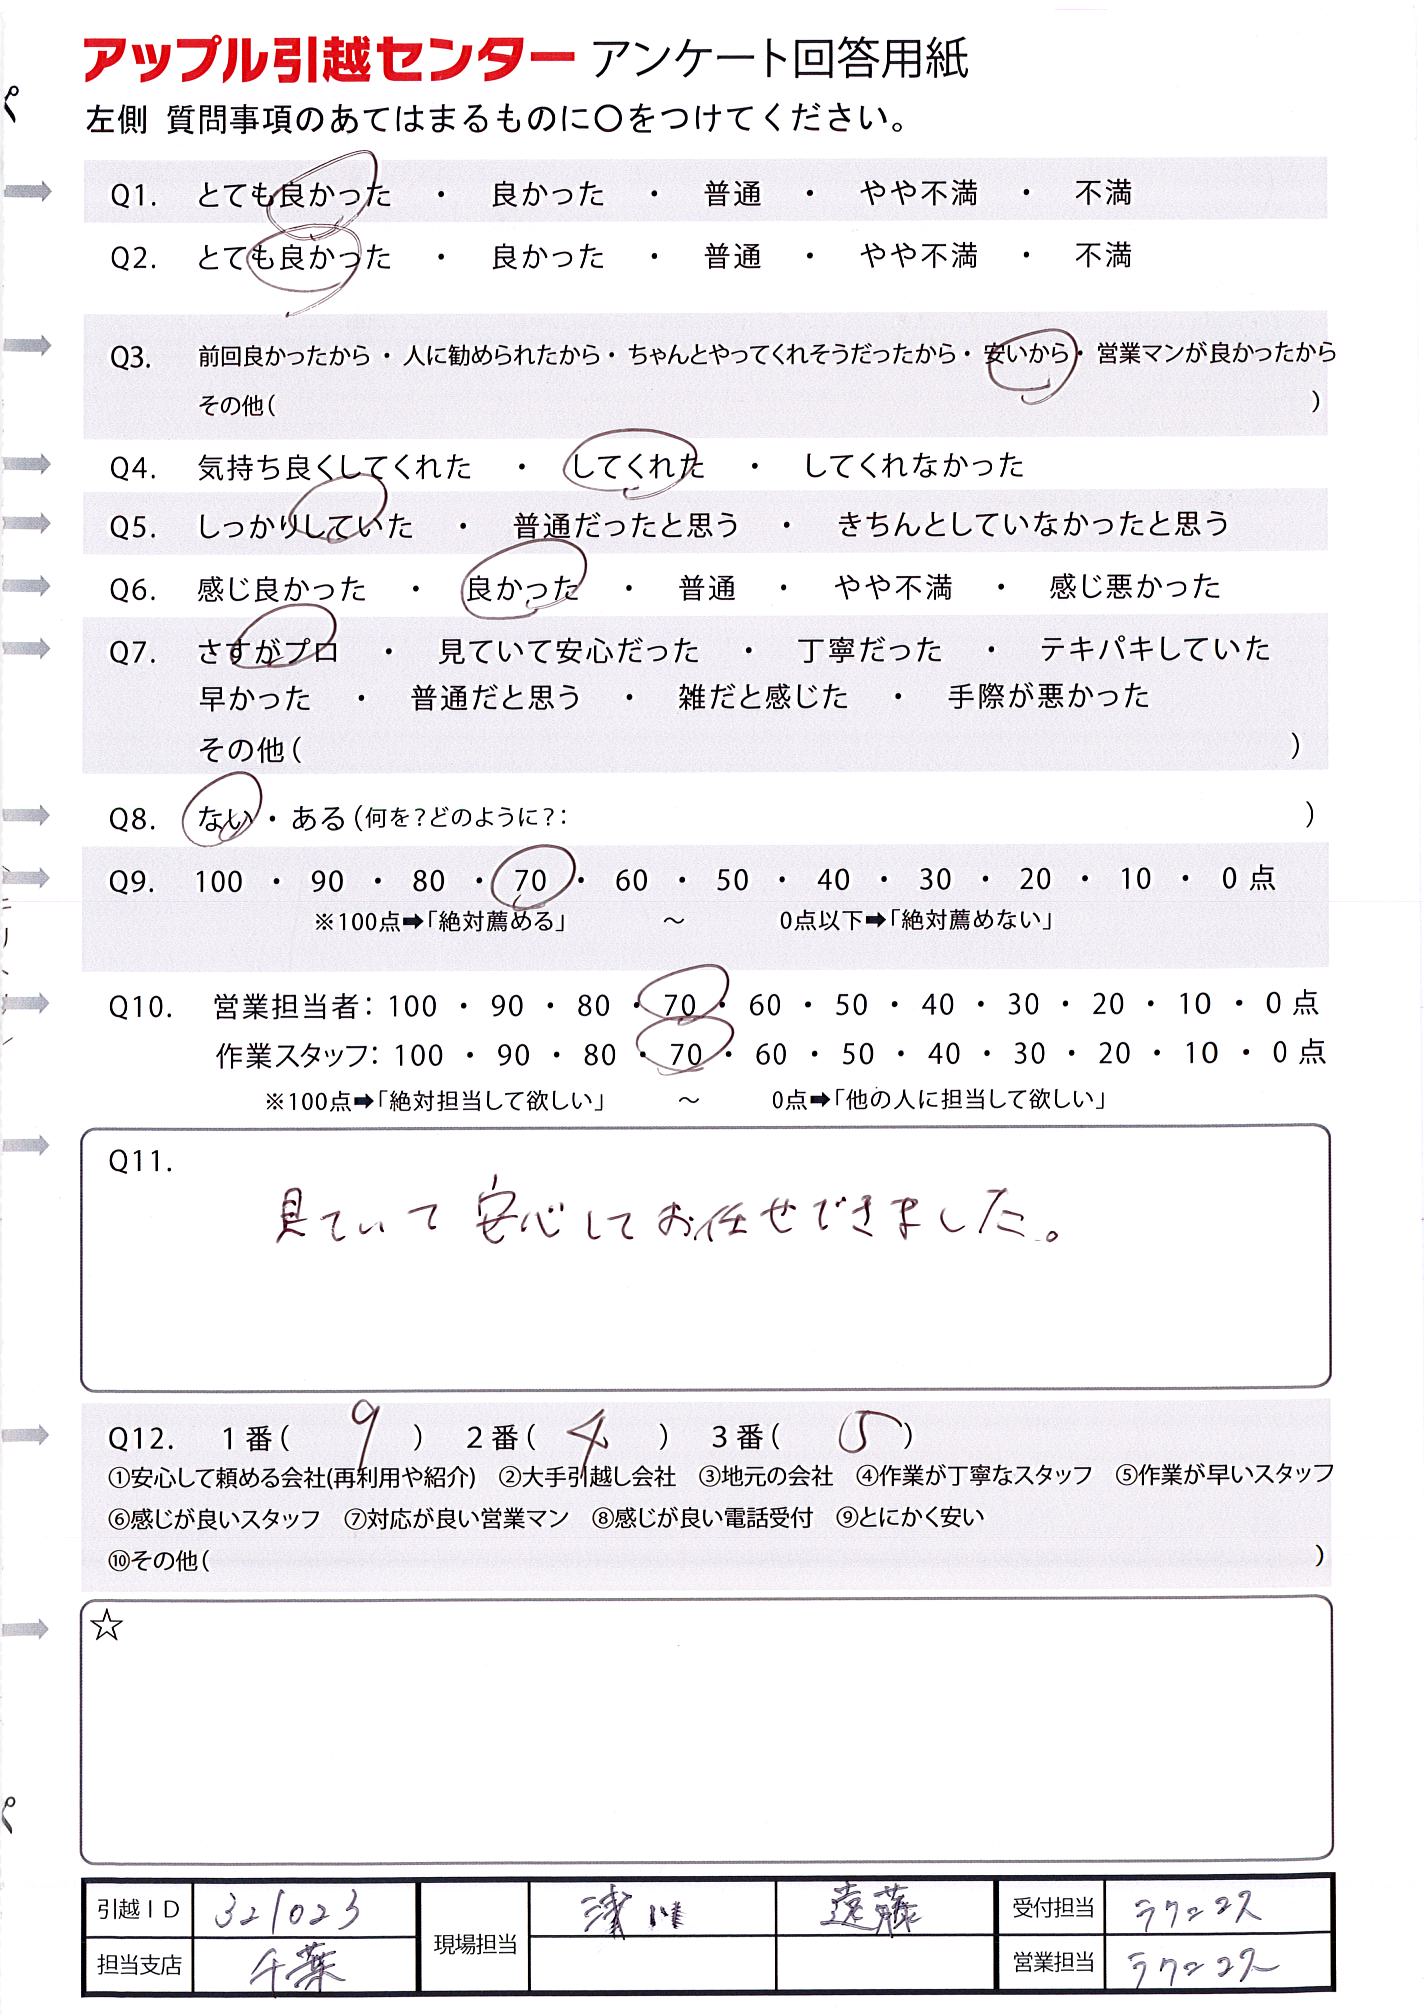 アップル引越センター アンケート回答用紙
左側 質問事項のあてはまるものに〇をつけてください。
Q1. とても良かった ・ 良かった ・ 普通 ・ やや不満 ・ 不満
Q2. とても良かった ・ 良かった ・ 普通 ・ やや不満 ・ 不満
Q3. 前回良かったから・人に勧められたから・ちゃんとやってくれそうだったから・安いから・営業マンが良かったから
その他( )
Q4. 気持ち良くしてくれた ・ してくれた ・ してくれなかった
Q5. しっかりしていた ・ 普通だったと思う ・ きちんとしていなかったと思う
Q6. 感じ良かった ・ 良かった ・ 普通 ・ やや不満 ・ 感じ悪かった
Q7. さすがプロ ・ 見ていて安心だった ・ 丁寧だった ・ テキパキしていた
早かった ・ 普通だと思う ・ 雑だと感じた ・ 手際が悪かった
その他( )
Q8. ない・ある(何を?どのように?: )
Q9. 100 ・ 90 ・ 80 ・ 70 ・ 60 ・ 50 ・ 40 ・ 30 ・ 20 ・ 10 ・ 0点
※100点➡「絶対薦める」 ～ 0点以下➡「絶対薦めない」
Q10. 営業担当者: 100 ・ 90 ・ 80 ・ 70 ・ 60 ・ 50 ・ 40 ・ 30 ・ 20 ・ 10 ・ 0点
作業スタッフ: 100 ・ 90 ・ 80 ・ 70 ・ 60 ・ 50 ・ 40 ・ 30 ・ 20 ・ 10 ・ 0点
※100点➡「絶対担当して欲しい」 ～ 0点➡「他の人に担当して欲しい」
Q11.
見ていて安心してお任せできました。
Q12. 1番( 9 ) 2番( 4 ) 3番( 5 )
①安心して頼める会社(再利用や紹介) ②大手引越し会社 ③地元の会社 ④作業が丁寧なスタッフ ⑤作業が早いスタッフ
⑥感じが良いスタッフ ⑦対応が良い営業マン ⑧感じが良い電話受付 ⑨とにかく安い
⑩その他( )
☆
引越ID 321023 現場担当 浅川 遠藤 受付担当 ラクニコス
担当支店 千葉 営業担当 ラクニコス